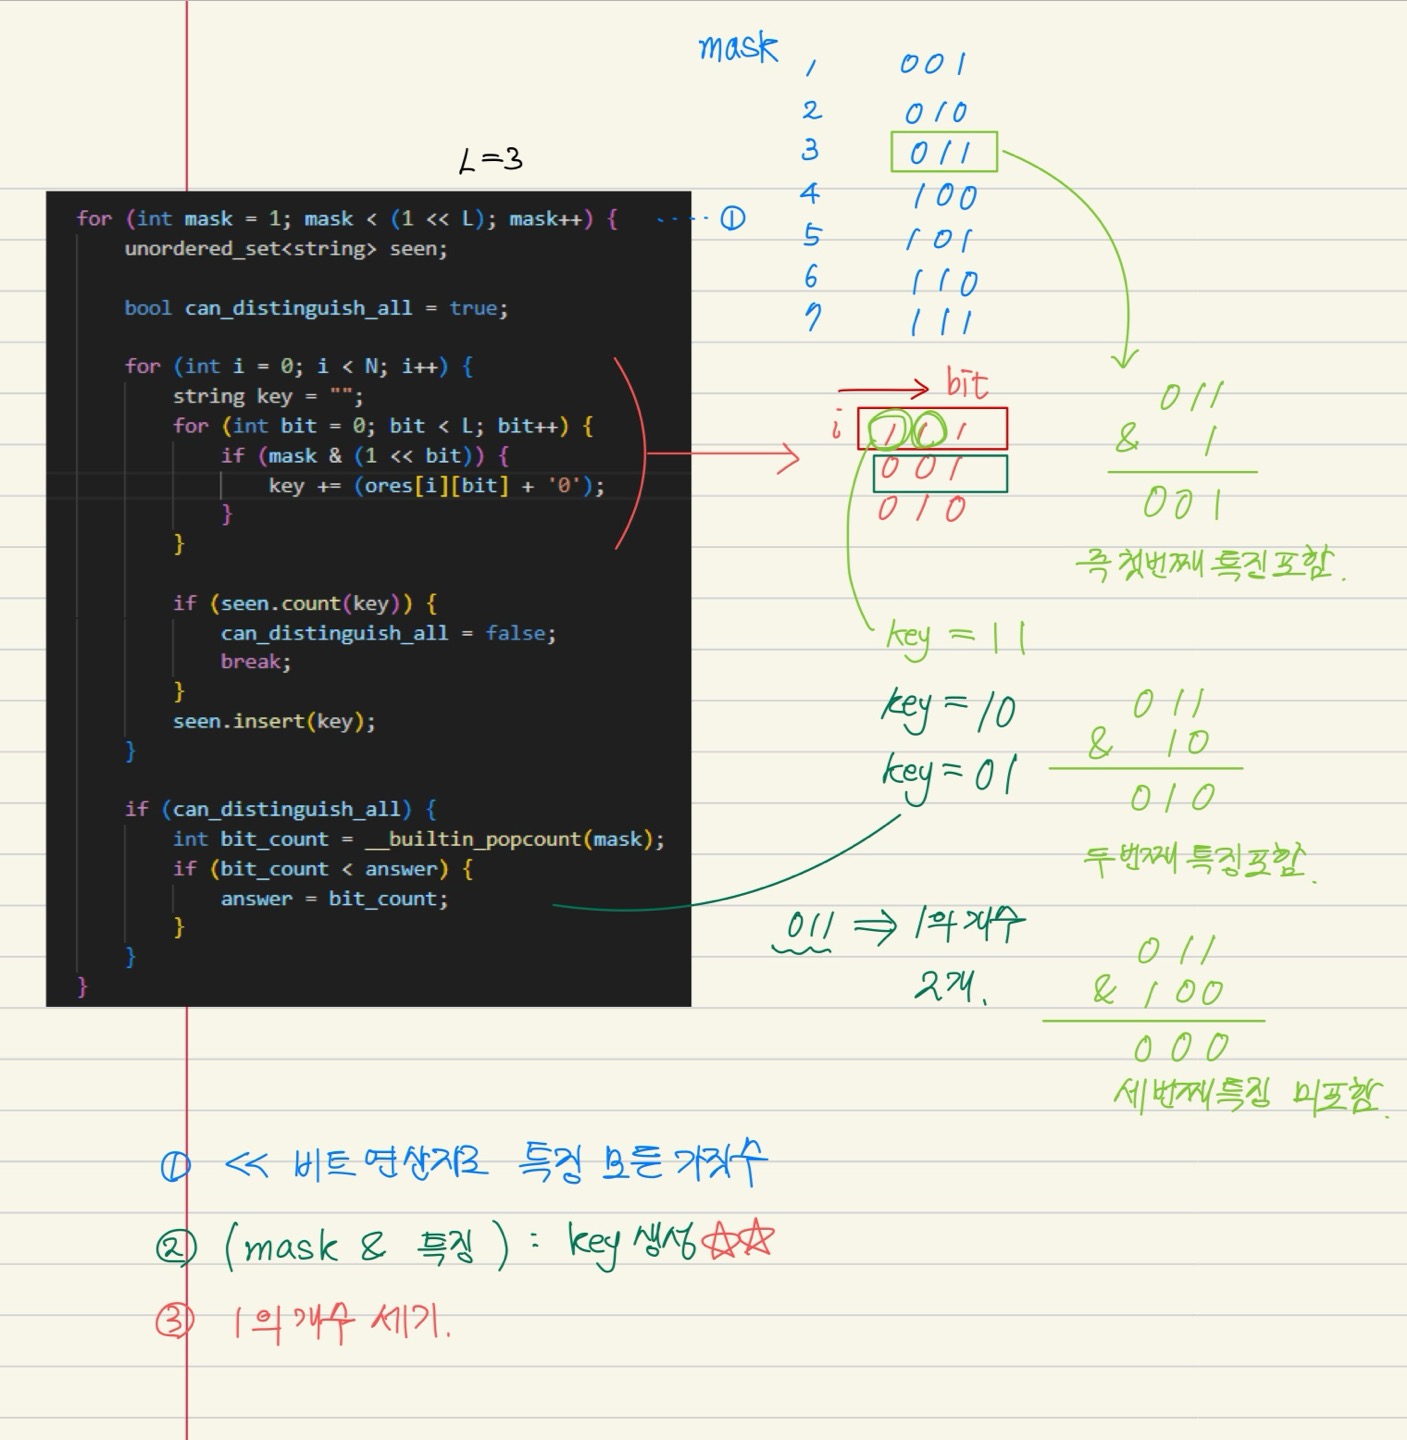 L=3
for (int mask = 1; mask < (1 << L); mask++) {
    unordered_set<string> seen;

    bool can_distinguish_all = true;

    for (int i = 0; i < N; i++) {
        string key = "";
        for (int bit = 0; bit < L; bit++) {
            if (mask & (1 << bit)) {
                key += (ores[i][bit] + '0');
            }
        }

        if (seen.count(key)) {
            can_distinguish_all = false;
            break;
        }
        seen.insert(key);
    }

    if (can_distinguish_all) {
        int bit_count = __builtin_popcount(mask);
        if (bit_count < answer) {
            answer = bit_count;
        }
    }
}
①
mask
1 001
2 010
3 011
4 100
5 101
6 110
7 111
bit
i
001
010
011
& 1
001
즉 첫번째 특징포함.
key = 11
key = 10
key = 01
011
& 10
010
두번째 특징포함.
011 ⇒ 1의 개수
2개.
011
& 100
000
세번째특징 미포함.
① << 비트 연산자로 특징 모든 가짓수
② (mask & 특징) : key 생성 ☆☆
③ 1의개수 세기.